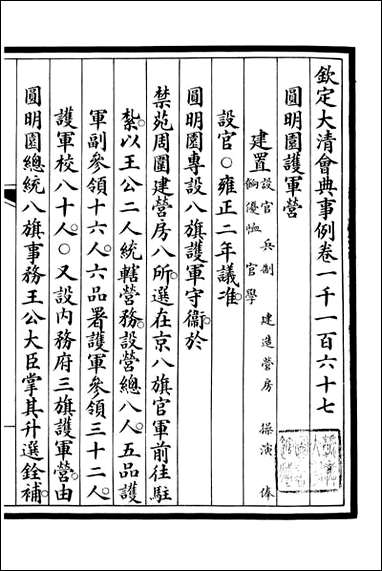 欽定大清會典事例卷一千一百六十七
圓明園護軍營
建置 設官 兵制 建造營房 操演 俸
餉優恤 官學
設官○雍正二年議准
圓明園專設八旗護軍守衞於
禁苑周圍建營房八所選在京八旗官軍前往駐
紮以王公二人統轄營務設營總八人五品護
軍副參領十六人六品署護軍參領三十二人
護軍校八十人○又設內務府三旗護軍營由
圓明園總統八旗事務王公大臣掌其升選銓補